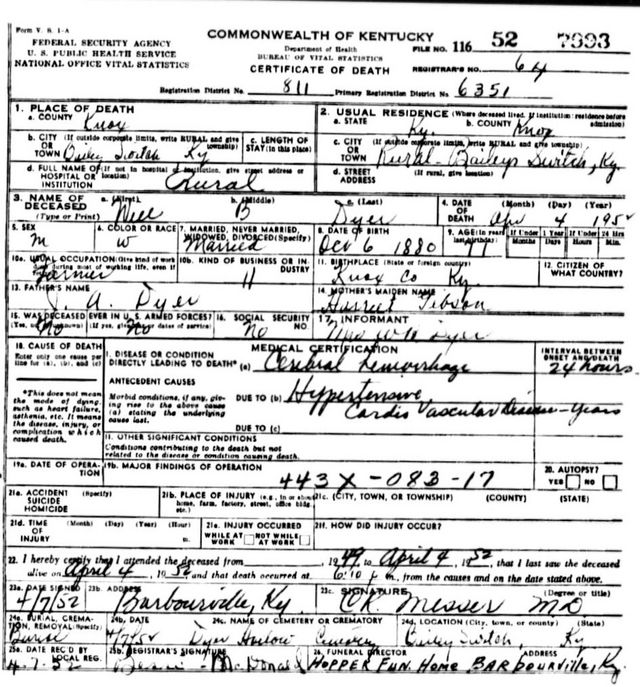 Form V. S. 1-A
FEDERAL SECURITY AGENCY
U. S. PUBLIC HEALTH SERVICE
NATIONAL OFFICE VITAL STATISTICS
COMMONWEALTH OF KENTUCKY
Department of Health
BUREAU OF VITAL STATISTICS
CERTIFICATE OF DEATH
FILE NO. 116 52 7993
REGISTRAR'S NO. 64
Registration District No. 811 Primary Registration District No. 6351
1. PLACE OF DEATH
a. COUNTY Knox
2. USUAL RESIDENCE (Where deceased lived. If institution: residence before admission)
a. STATE Ky. b. COUNTY Knox
b. CITY (If outside corporate limits, write RURAL and give township)
OR TOWN Bailey Switch Ky
c. LENGTH OF STAY (in this place)
c. CITY (If outside corporate limits, write RURAL and give township)
OR TOWN Rural - Baileys Switch, Ky.
d. FULL NAME OF (If not in hospital or institution, give street address or location)
HOSPITAL OR INSTITUTION Rural
d. STREET ADDRESS (If rural, give location)
3. NAME OF DECEASED (Type or Print)
a. (First) b. (Middle) c. (Last)
Will B Dyer
4. DATE OF DEATH (Month) (Day) (Year)
Apr 4 1952
5. SEX M
6. COLOR OR RACE W
7. MARRIED, NEVER MARRIED, WIDOWED, DIVORCED (Specify) Married
8. DATE OF BIRTH Dec 6 1880
9. AGE (In years last birthday) 71 If Under 1 Year Months Days If Under 24 Hrs Hours Min.
10a. USUAL OCCUPATION (Give kind of work done during most of working life, even if retired) Farmer
10b. KIND OF BUSINESS OR INDUSTRY
11. BIRTHPLACE (State or foreign country) Knox Co Ky.
12. CITIZEN OF WHAT COUNTRY?
13. FATHER'S NAME J. A. Dyer
14. MOTHER'S MAIDEN NAME Harriet Gibson
15. WAS DECEASED EVER IN U. S. ARMED FORCES?
(Yes, no, or unknown) (If yes, give war or dates of service)
No No
16. SOCIAL SECURITY NO. No
17. INFORMANT Mrs W B Dyer
18. CAUSE OF DEATH
Enter only one cause per line for (a), (b), and (c)
MEDICAL CERTIFICATION
I. DISEASE OR CONDITION DIRECTLY LEADING TO DEATH* (a) Cerebral hemorrhage
INTERVAL BETWEEN ONSET AND DEATH
24 hours
*This does not mean the mode of dying, such as heart failure, asthenia, etc. It means the disease, injury, or complication which caused death.
ANTECEDENT CAUSES
Morbid conditions, if any, giving rise to the above cause (a) stating the underlying cause last.
DUE TO (b) Hypertensive Cardio Vascular Disease - years
DUE TO (c)
II. OTHER SIGNIFICANT CONDITIONS
Conditions contributing to the death but not related to the disease or condition causing death.
19a. DATE OF OPERATION
19b. MAJOR FINDINGS OF OPERATION
443X-083-17
20. AUTOPSY?
YES NO
21a. ACCIDENT SUICIDE HOMICIDE (Specify)
21b. PLACE OF INJURY (e.g., in or about home, farm, factory, street, office bldg., etc.)
21c. (CITY, TOWN, OR TOWNSHIP) (COUNTY) (STATE)
21d. TIME OF INJURY (Month) (Day) (Year) (Hour) m.
21e. INJURY OCCURRED
WHILE AT WORK NOT WHILE AT WORK
21f. HOW DID INJURY OCCUR?
22. I hereby certify that I attended the deceased from 1949 to April 4, 1952, that I last saw the deceased
alive on April 4, 1952 and that death occurred at 6:10 p m., from the causes and on the date stated above.
23a. DATE SIGNED 4/7/52
23b. ADDRESS Barbourville, Ky
23c. SIGNATURE (Degree or title)
CR. Messer MD
24a. BURIAL, CREMATION, REMOVAL (Specify) Burial
24b. DATE 4/7/52
24c. NAME OF CEMETERY OR CREMATORY Dyer Harlow Cemetery
24d. LOCATION (City, town, or county) (State)
Bailey Switch Ky
25a. DATE REC'D BY LOCAL REG. 4-7-52
25b. REGISTRAR'S SIGNATURE McDonald
26. FUNERAL DIRECTOR ADDRESS
HOPPER FUN. Home BARbourville, Ky.